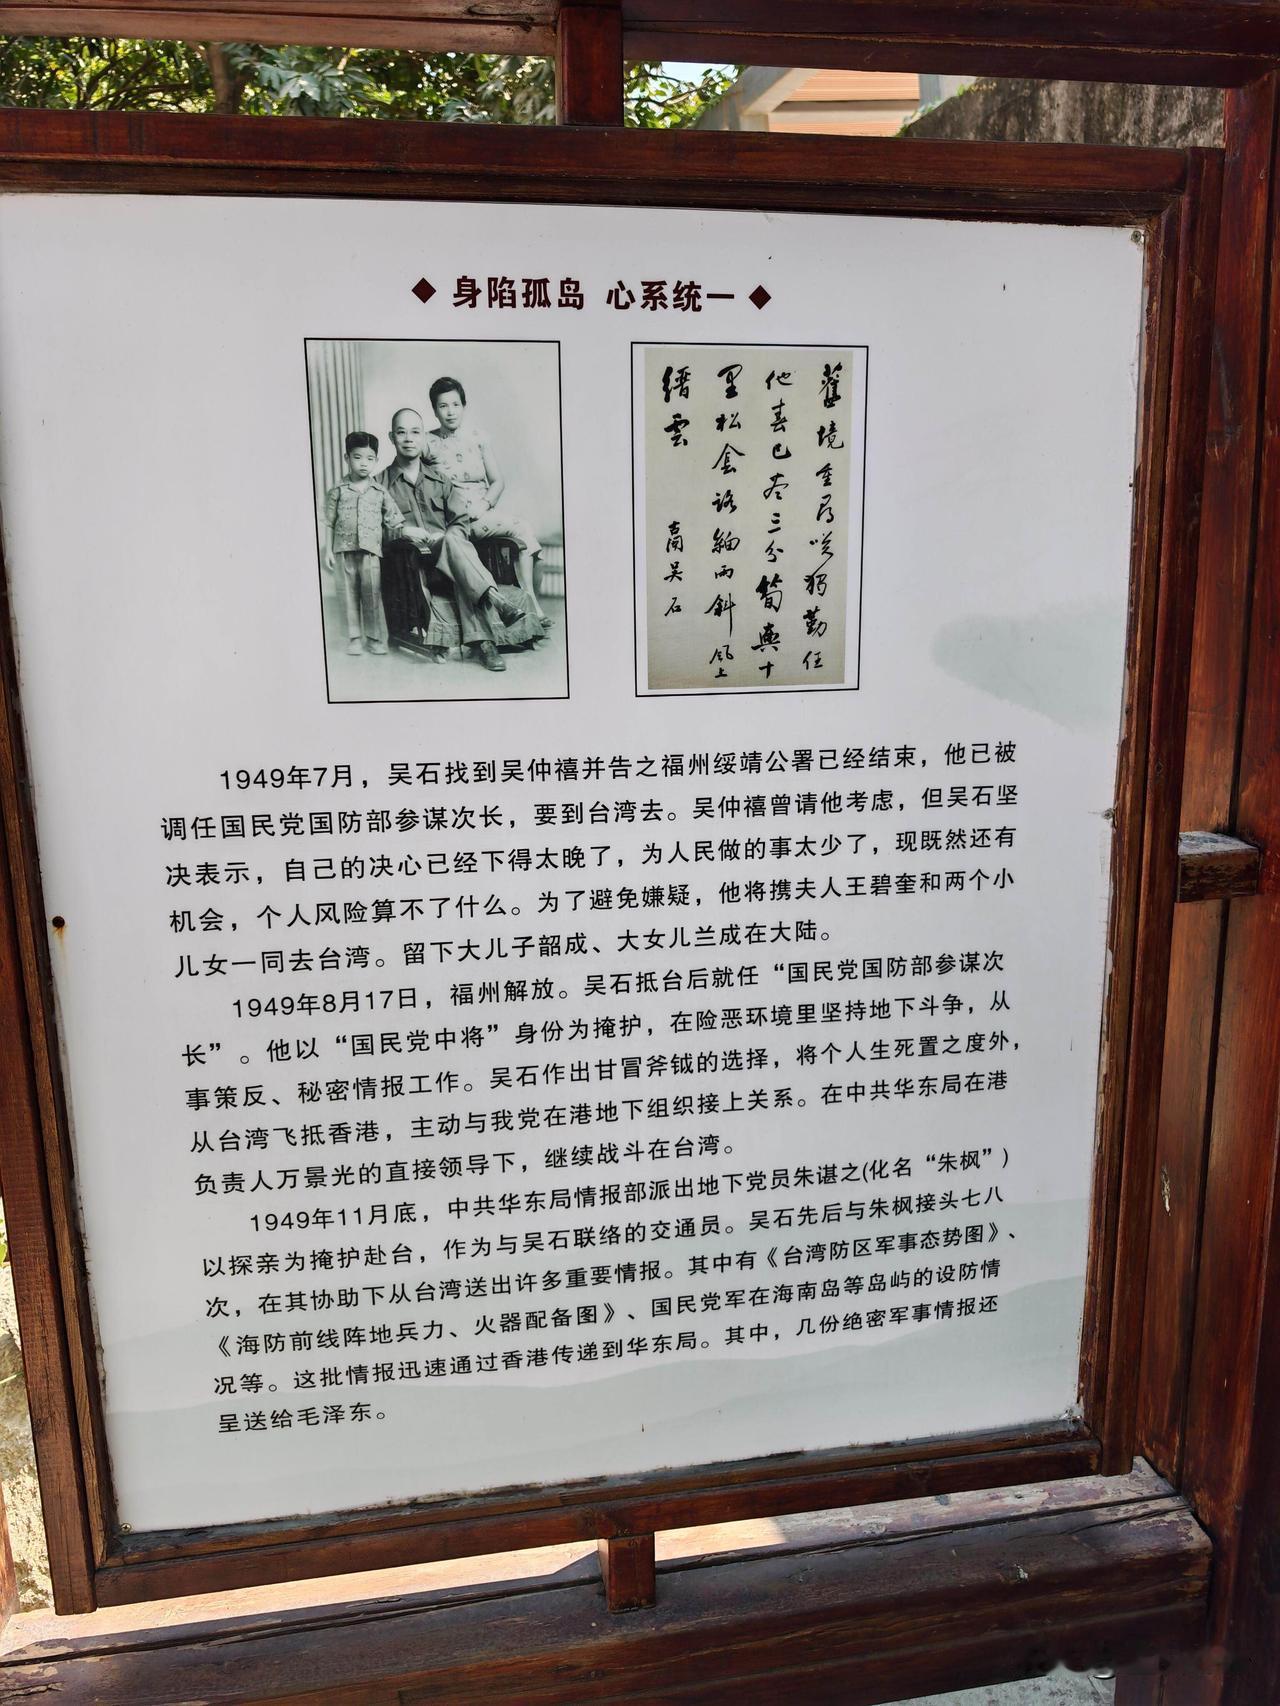 ◆ 身陷孤岛 心系统一 ◆
舊境重尋嘆獨勤任
他春已老三分筍輿十
里松盒路細雨斜風上
縉雲
吴石
1949年7月，吴石找到吴仲禧并告之福州绥靖公署已经结束，他已被
调任国民党国防部参谋次长，要到台湾去。吴仲禧曾请他考虑，但吴石坚
决表示，自己的决心已经下得太晚了，为人民做的事太少了，现既然还有
机会，个人风险算不了什么。为了避免嫌疑，他将携夫人王碧奎和两个小
儿女一同去台湾。留下大儿子韶成、大女儿兰成在大陆。
1949年8月17日，福州解放。吴石抵台后就任“国民党国防部参谋次
长”。他以“国民党中将”身份为掩护，在险恶环境里坚持地下斗争，从
事策反、秘密情报工作。吴石作出甘冒斧钺的选择，将个人生死置之度外，
从台湾飞抵香港，主动与我党在港地下组织接上关系。在中共华东局在港
负责人万景光的直接领导下，继续战斗在台湾。
1949年11月底，中共华东局情报部派出地下党员朱谌之(化名“朱枫”)
以探亲为掩护赴台，作为与吴石联络的交通员。吴石先后与朱枫接头七八
次，在其协助下从台湾送出许多重要情报。其中有《台湾防区军事态势图》、
《海防前线阵地兵力、火器配备图》、国民党军在海南岛等岛屿的设防情
况等。这批情报迅速通过香港传递到华东局。其中，几份绝密军事情报还
呈送给毛泽东。